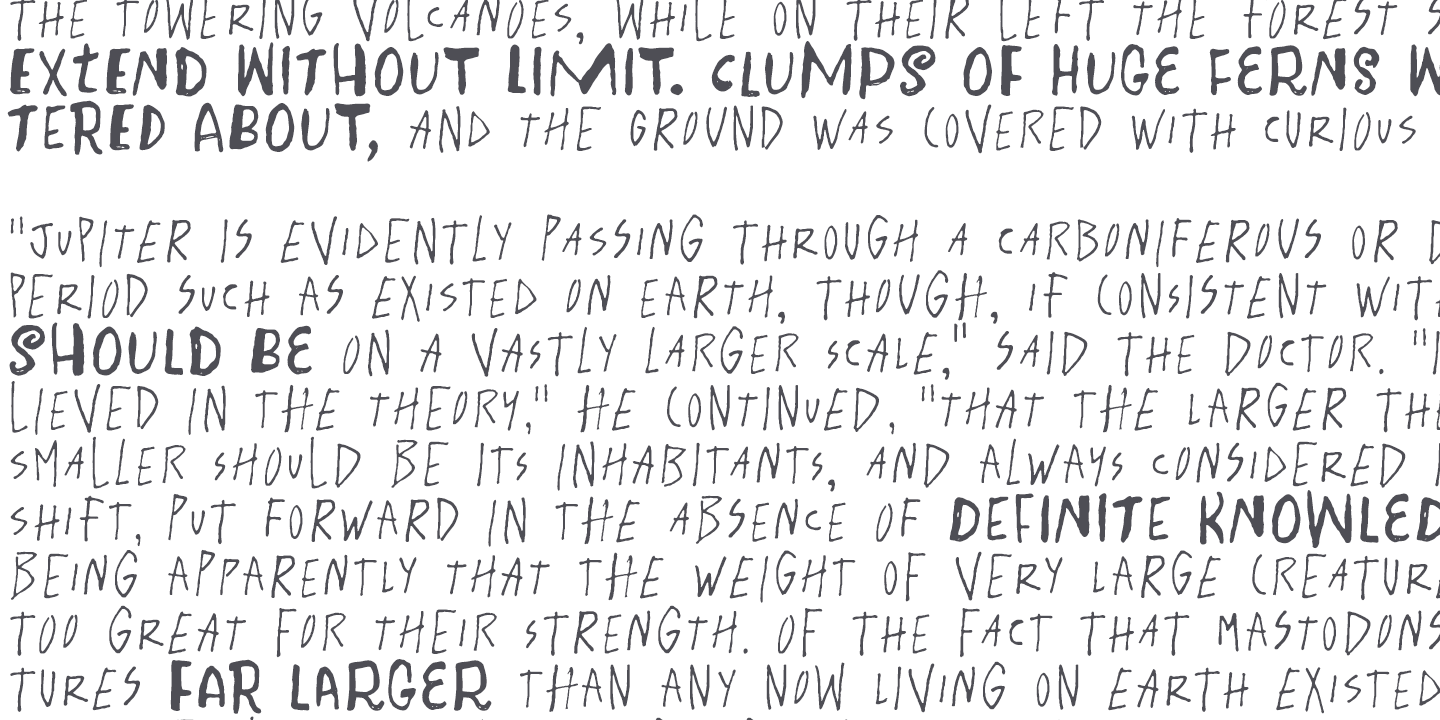 THE TOWERING VOLCANOES, WHILE ON THEIR LEFT THE FOREST
EXTEND WITHOUT LIMIT. CLUMPS OF HUGE FERNS
TERED ABOUT, AND THE GROUND WAS COVERED WITH CURIOUS
"JUPITER IS EVIDENTLY PASSING THROUGH A CARBONIFEROUS OR
PERIOD SUCH AS EXISTED ON EARTH, THOUGH, IF CONSISTENT WITH
SHOULD BE ON A VASTLY LARGER SCALE," SAID THE DOCTOR. "I
LIEVED IN THE THEORY," HE CONTINUED, "THAT THE LARGER THE
SMALLER SHOULD BE ITS INHABITANTS, AND ALWAYS CONSIDERED
SHIFT, PUT FORWARD IN THE ABSENCE OF DEFINITE KNOWLED
BEING APPARENTLY THAT THE WEIGHT OF VERY LARGE CREATUR
TOO GREAT FOR THEIR STRENGTH. OF THE FACT THAT MASTODONS
TURES FAR LARGER THAN ANY NOW LIVING ON EARTH EXISTED